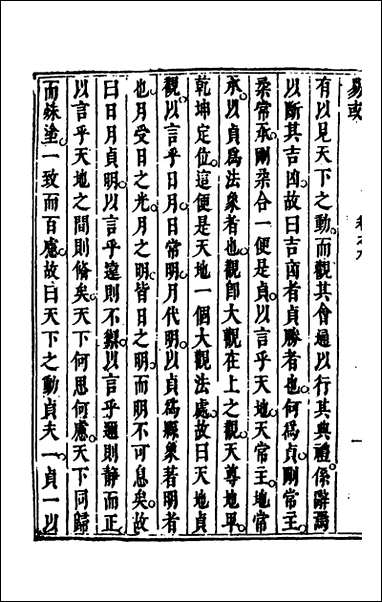 易或 卷之九 一
有以見天下之動而觀其會通以行其典禮係辭焉
以斷其吉凶故曰吉凶者貞勝者也何爲貞剛常主
柔常承剛柔合一便是貞以言乎天地天常主地常
承以貞爲法象者也觀卽大觀在上之觀天尊地卑
乾坤定位這便是天地一個大觀法處故曰天地貞
觀以言乎日月日常明月代明以貞爲縣象著明者
也月受日之光月之明皆日之明而明不可息矣故
曰日月貞明以言乎遠則不禦以言乎邇則静而正
以言乎天地之間則備矣天下何思何慮天下同歸
而殊塗一致而百慮故曰天下之動貞夫一貞一以